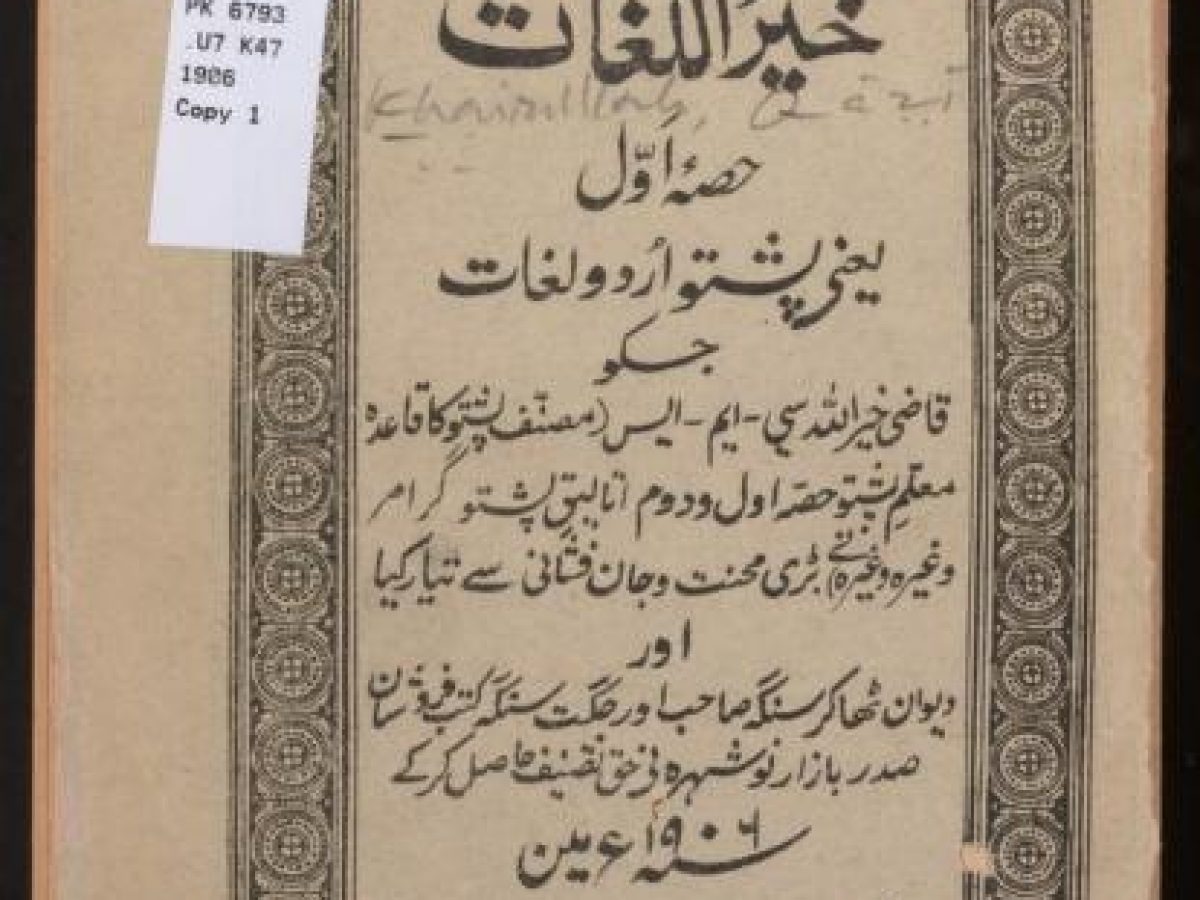 PK 6793
.U7 K47
1906
Copy 1
خیر اللغات
Khairullah,
حصۂ اَوّل
یعنی پشتو اُردو لغات
جسکو
قاضی خیر اللہ سی - ایم - ایس (مصنّف پشتو کا قاعدہ
معلمِ پشتو حصّہ اول و دوم اتالیقِ پشتو گرامر
وغیرہ وغیرہ) نے بڑی محنت و جان فشانی سے تیار کیا
اور
دیوان ٹھاکر سنگہ صاحب اور جگت سنگہ کتب فروشان
صدر بازار نوشہرہ نی حق تصنیف حاصل کر کے
سنہ ۱۹۰۶ء مین